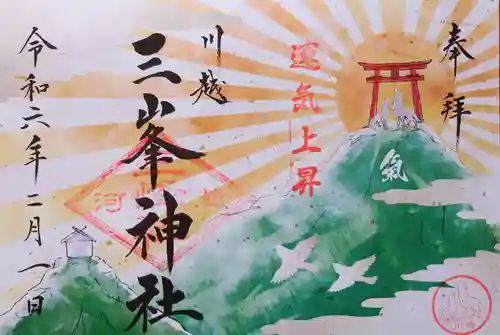 奉拝
運気上昇
氣
川越
三峯神社
令和六年二月一日